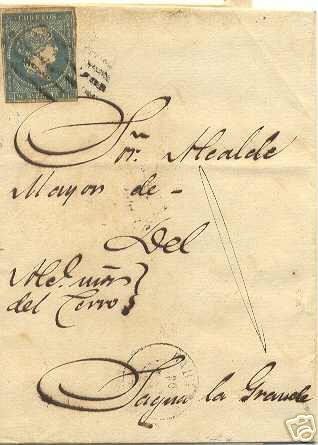 CORREOS
Sor. Alcalde
Mayor de
Del
Alce. mor
del Cerro
Sagua la Grande